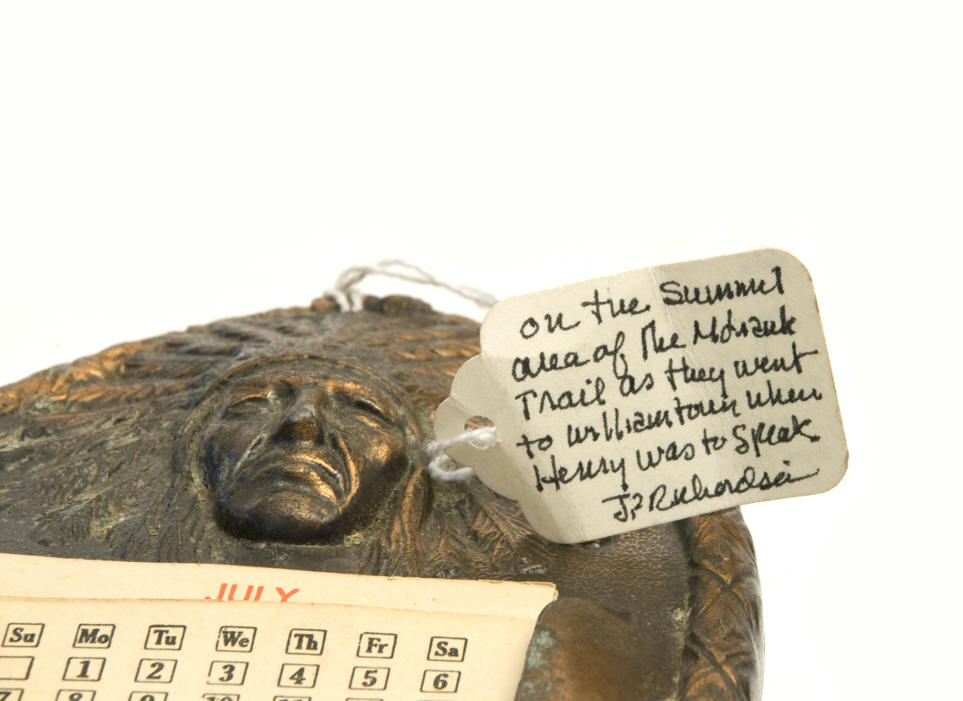 on the Summit
area of the Mohawk
Trail as they went
to Williamtown when
Henry was to Speak
JP Richardson
JULY
Su Mo Tu We Th Fr Sa
1 2 3 4 5 6
7 8 9 10 11